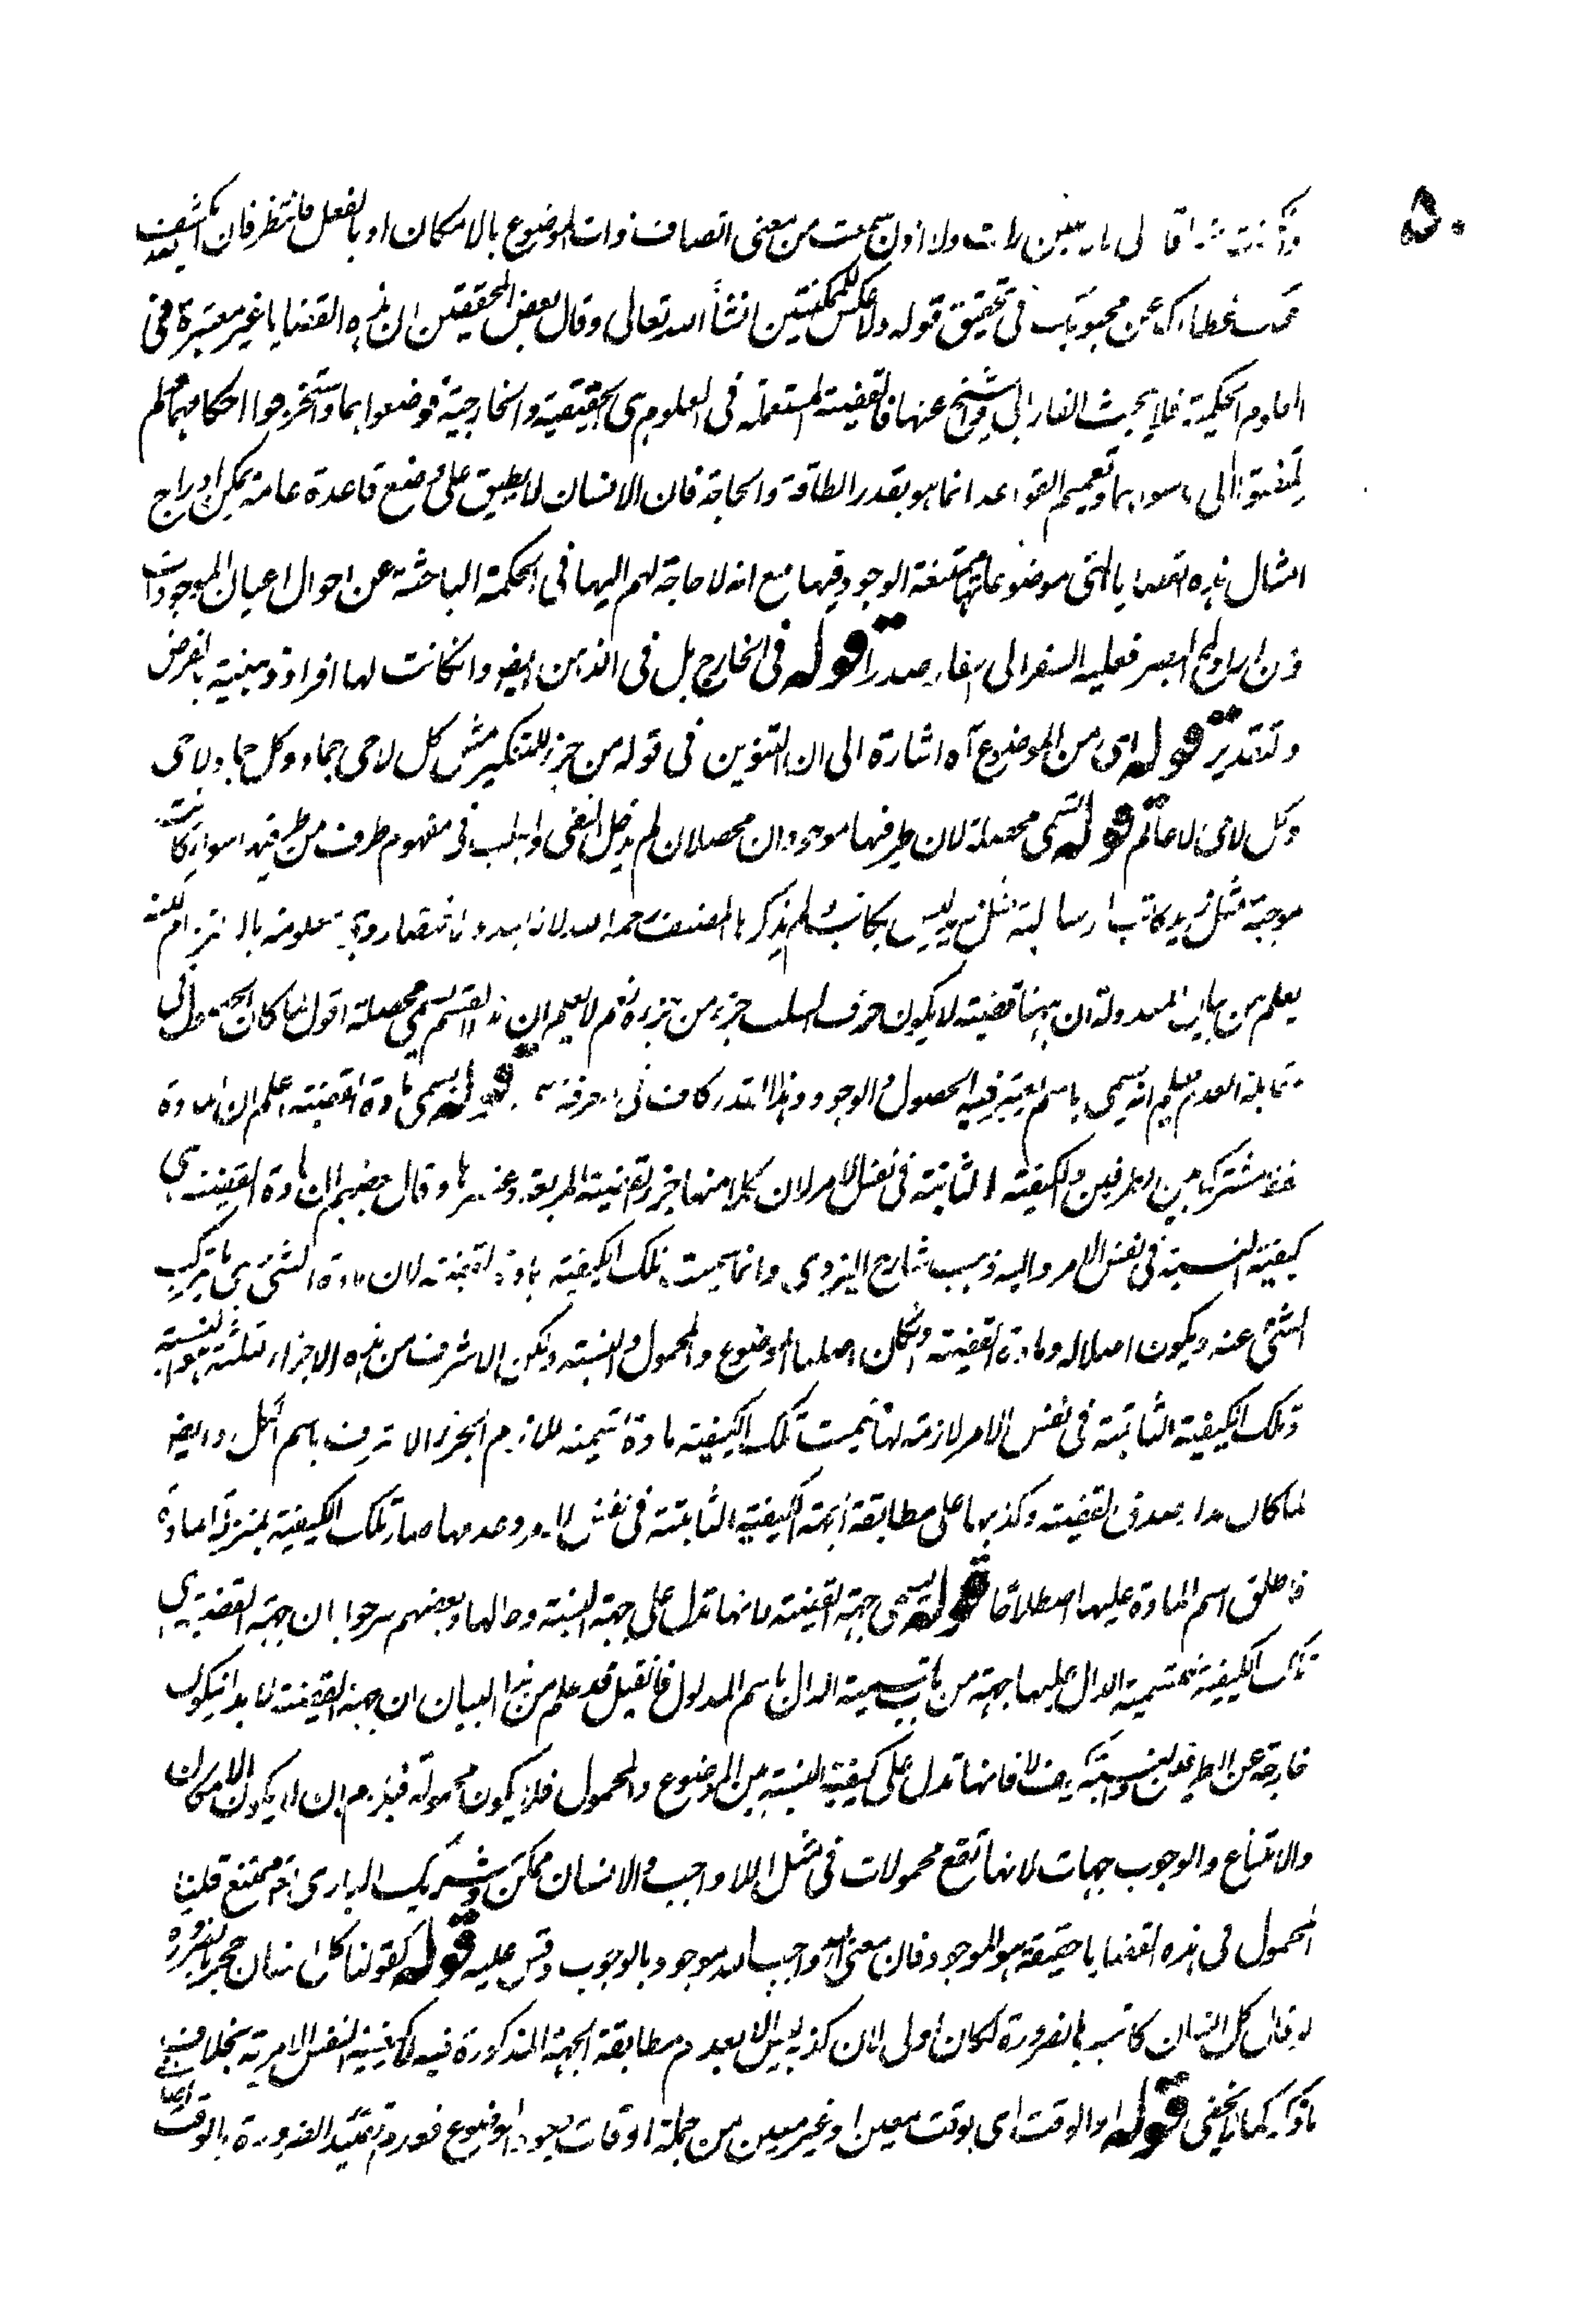 ٥٠
لا اذن سمعت من معنى اتصاف ذات الموضوع بالامكان او بالفعل فانتظر فان نكشف بعيد
غطاءك عن محبوبك فى تحقيق قوله ولا عكس للممكنتين انشأ الله تعالى وقال بعض المحققين ان هذه القضايا غير معتبرة فى
العلوم الحكمية فلا يبحث الفارابى والشيخ عنها فالقضية المستعملة فى العلوم هى الحقيقية والخارجية فوضعوا بها واستخرجوا احكامهما لم
يلتفتوا الى ما سواهما وتعميم القواعد انما هو بقدر الطاقة والحاجة فان الانسان لا يطيق على وضع قاعدة عامة يمكن ادراج
امثال هذه القضايا التى موضوعاتها ممتنعة الوجود فيها مع انه لا حاجة لهم اليها فى الحكمة الباحثة عن احوال اعيان الموجودات
فعليه السفر الى اسفار صدرا قوله فى الخارج بل فى الذهن ايضو وانكانت لها افراد ذهنية بالفرض
والتقدير قوله اى من الموضوع آه اشارة الى ان التنوين فى قوله من جزء للتنكير مثل كل لاحى جماد وكل جماد لاحى
وكل لاحى لا عالم قوله تسمى محصلة لان طرفيها موجودان محصلان لم يدخل النفى والسلب فى مفهوم طرف من طرفيه سواء كانت
موجبة مثل زيد كاتب او سالبة مثل زيد ليس بكاتب لم يذكرها المصنف رحمه الله لانه
يعلم من بيان المعدولة ان ههنا قضية لا يكون حرف السلب جزء من جزءه نعم لا يعلم ان هذا القسم يسمى محصلة اقول لما كان الحصول فى
مقابلة العدم علم انه يسمى باسم يعتبر فيه الحصول والوجود وهذا القدر كاف فى معرفة قوله يسمى مادة القضية اعلم ان المادة
لفظ مشترك بين الطرفين والكيفية الثابتة فى نفس الامر لان كلا منها جزء القضية المربعة وغيرها وقال بعضهم ان مادة القضية هى
كيفية النسبة فى نفس الامر واليه ذهب شارح اليزدى وانما سميت تلك الكيفية مادة القضية لان مادة الشئ هى ما تركب
الشئ عنه ويكون اصلا له ومادة القضية والكل اصلها الموضوع والمحمول والنسبة ولكن الاشرف من هذه الاجزاء الثلثة هو النسبة
وتلك الكيفية الثابتة فى نفس الامر لازمة لها سميت تلك الكيفية مادة تسمية للازم الجزء الاشرف باسم الكل وايضو
لما كان مدار صدق القضية وكذبها على مطابقة الجهة الكيفية الثابتة فى نفس الامر وعدمها صار تلك الكيفية بمنزلة المادة
فاطلق اسم المادة عليها اصطلاحًا قوله تسمى جهة القضية لانها تدل على جهة النسبة وحالها وبعضهم صرحوا بان جهة القضية هى
تلك الكيفية فتسمية الدال عليها جهة من باب تسمية الدال باسم المدلول فانقيل قد علم من هذا البيان ان جهة القضية لابد انيكون
خارجة عن الطرفين والنسبة فانها تدل على كيفية النسبة بين الموضوع والمحمول فلا يكون محمولة فيلزم ان لا يكون الامكان
والامتناع والوجوب جهات لانها تقع محمولات فى مثل الله واجب والانسان ممكن وشريك البارى تعم ممتنع قلنا
المحمول فى هذه القضايا حقيقة هو الموجود فان معنى الله واجب الله موجود بالوجوب وقس عليه قوله كقولنا كل انسان حجر بالضرورة
لو قال كل انسان كاتب بالضرورة لكان اولى لان كذبه ليس الا بعدم مطابقة الجهة المذكورة فيه للكيفية النفس الامرية بخلاف
ما ذكر كما لا يخفى قوله او الوقت اى بوقت معين او غير معين من جملة اوقات وجود الموضوع فعدم تقييد الضرورة بالوقت